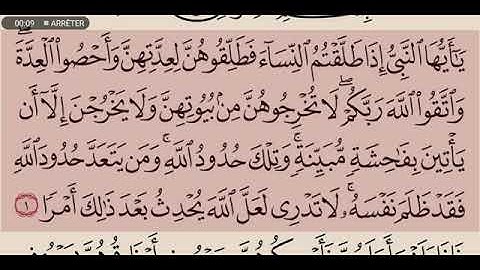 00:09 ■ ARRÊTER
يَـٰٓأَيُّهَا ٱلنَّبِىُّ إِذَا طَلَّقْتُمُ ٱلنِّسَآءَ فَطَلِّقُوهُنَّ لِعِدَّتِهِنَّ وَأَحْصُوا۟ ٱلْعِدَّةَ ۖ
وَٱتَّقُوا۟ ٱللَّهَ رَبَّكُمْ ۖ لَا تُخْرِجُوهُنَّ مِنۢ بُيُوتِهِنَّ وَلَا يَخْرُجْنَ إِلَّآ أَن
يَأْتِينَ بِفَـٰحِشَةٍ مُّبَيِّنَةٍ ۚ وَتِلْكَ حُدُودُ ٱللَّهِ ۚ وَمَن يَتَعَدَّ حُدُودَ ٱللَّهِ
فَقَدْ ظَلَمَ نَفْسَهُۥ ۚ لَا تَدْرِى لَعَلَّ ٱللَّهَ يُحْدِثُ بَعْدَ ذَٰلِكَ أَمْرًا ١